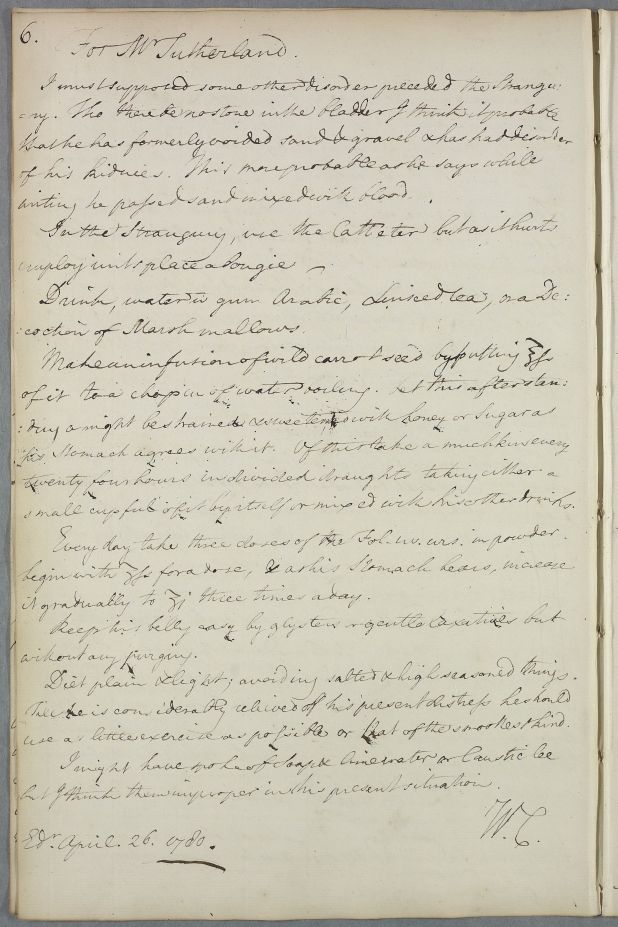 6.
For Mr Sutherland.
I must suppose some other disorder preceded the Strangu:
=ry. Tho there be no stone in the bladder I think it probable
that he has formerly voided sand & gravel & has had disorder
of his Kidnies. This more probable as he says while
writing he passed sand mixed with blood.
In the Strangury, use the Catheter but as it hurts
employ in its place a Bougie
Drink, water wt gum Arabic, Linseed tea, or a De:
:coction of Marsh mallows.
Make an infusion of wild carrot seed by putting ℥ss
of it to a chopin of water boiling. Let this after stan:
:ding a night be strained & sweetened with honey or Sugar as
his Stomach agrees with it. Of this take a mutchkin every
twenty four hours in divided draughts taking either a
small cupful of it by itself or mixed with his other drinks.
Every day take three doses of the Fol. uv. urs. in powder.
begin with ʒss for a dose, & as his Stomach bears, increase
it gradually to ʒj three times a day.
Keep his belly easy by glysters or gentle Laxatives but
without any purging.
Diet plain & light; avoiding salted & high seasoned things.
Till he is considerably relieved of his present distress he should
use as little exercise as possible or that of the smoothest kind.
I might have spoke of Soap & Limewater or Caustic lee
but I think them improper in his present situation.
W.C.
Edr. April. 26. 1780.